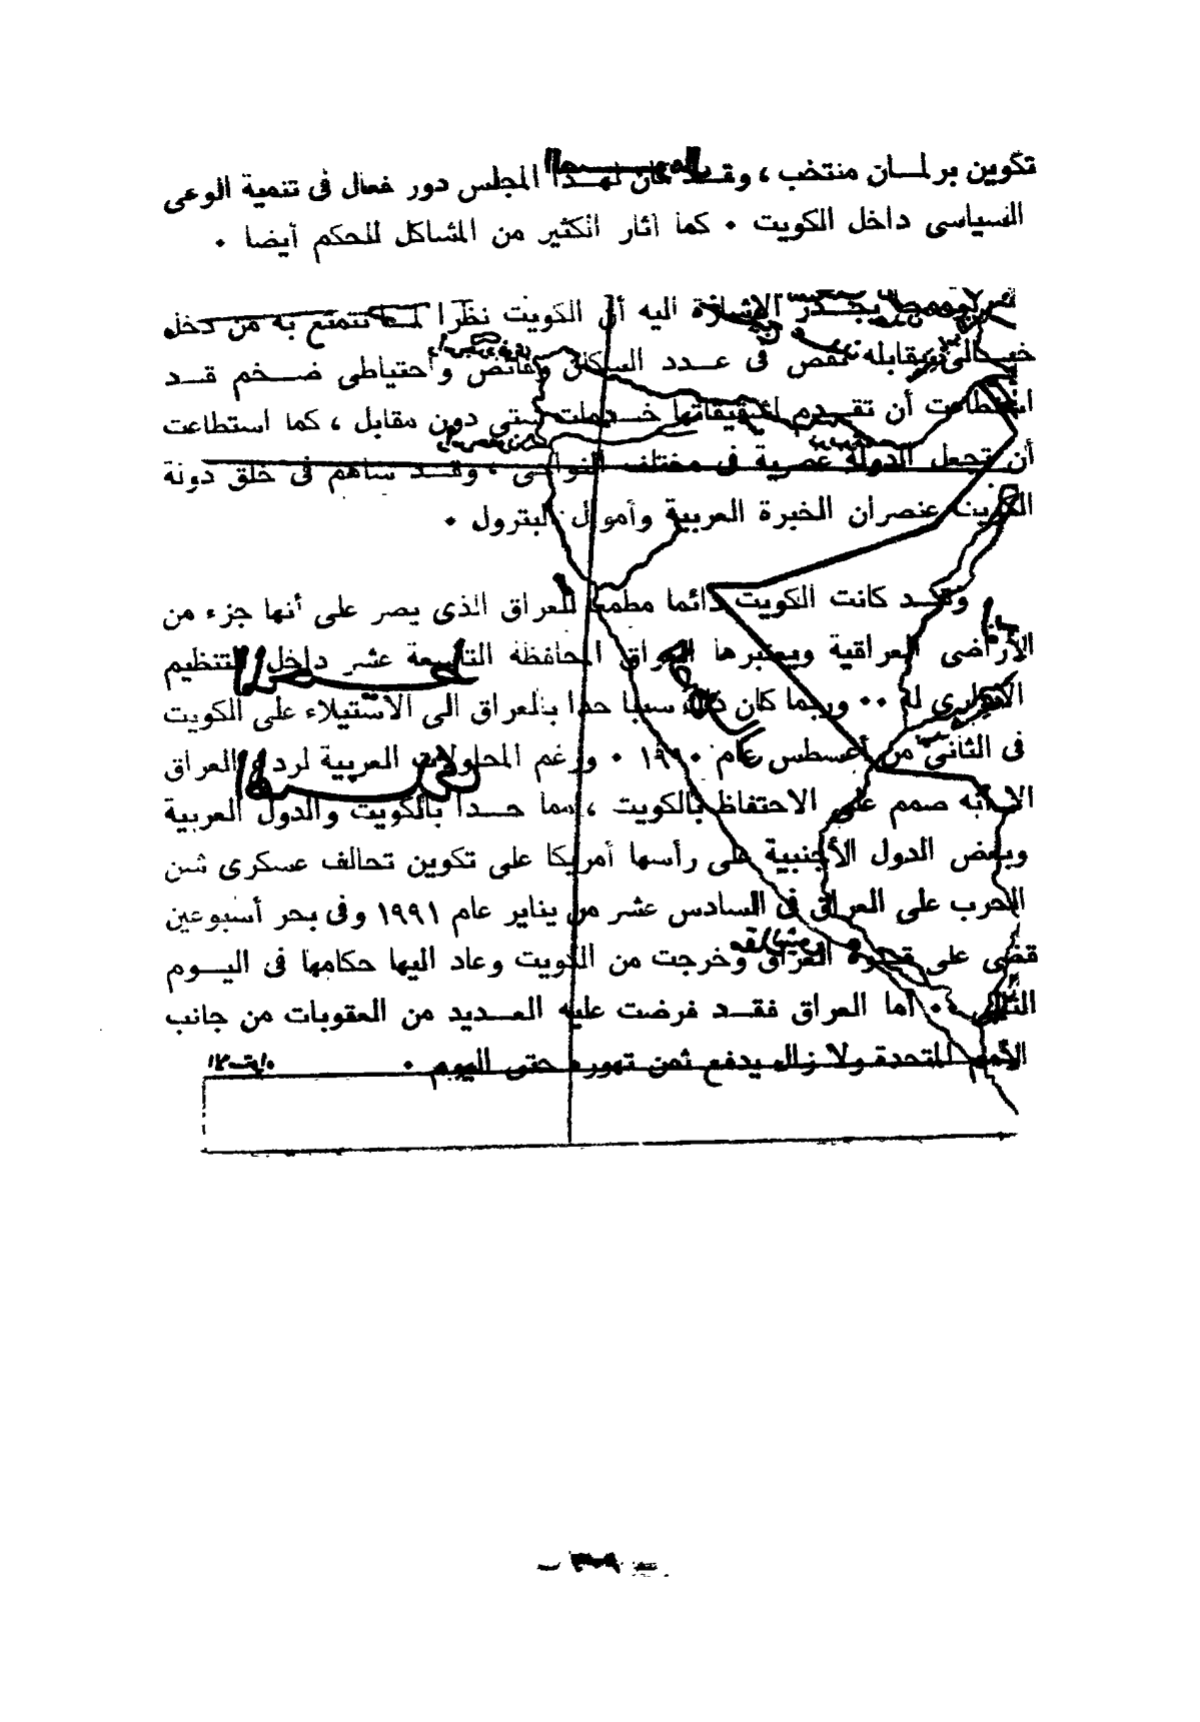 تكوين برلمان منتخب ، وقد كان لهذا المجلس دور فعال فى تنمية الوعى
السياسى داخل الكويت ٠ كما آثار الكثير من المشاكل للحكم أيضا ٠
ومما يجدر الاشارة اليه أن الكويت نظرا لما تتمتع به من دخل
خيالى يقابله نقص فى عدد السكان وفائض واحتياطى ضخم قد
استطاعت أن تقدم لشقيقاتها خدمات شتى دون مقابل ، كما استطاعت
أن تجعل الدولة عصرية فى مختلف النواحى ٠ وقد ساهم فى خلق دولة
الكويت عنصران الخبرة العربية وأموال البترول ٠
وقد كانت الكويت دائما مطمعا للعراق الذى يصر على أنها جزء من
الأراضى العراقية ويعتبرها العراق المحافظة التاسعة عشر داخل التنظيم
الادارى له ٠٠ وربما كان ذلك سببا حدا بالعراق الى الاستيلاء على الكويت
فى الثانى من أغسطس عام ١٩٩٠ ٠ ورغم المحاولات العربية لردع العراق
الا أنه صمم على الاحتفاظ بالكويت ، مما حدا بالكويت والدول العربية
وبعض الدول الأجنبية على رأسها أمريكا على تكوين تحالف عسكرى شن
الحرب على العراق فى السادس عشر من يناير عام ١٩٩١ وفى بحر أسبوعين
قضى على قوة العراق وخرجت من الكويت وعاد اليها حكامها فى اليوم
التالى ٠٠ أما العراق فقد فرضت عليه العديد من العقوبات من جانب
الأمم المتحدة ولا زال يدفع ثمن تهوره حتى اليوم ٠